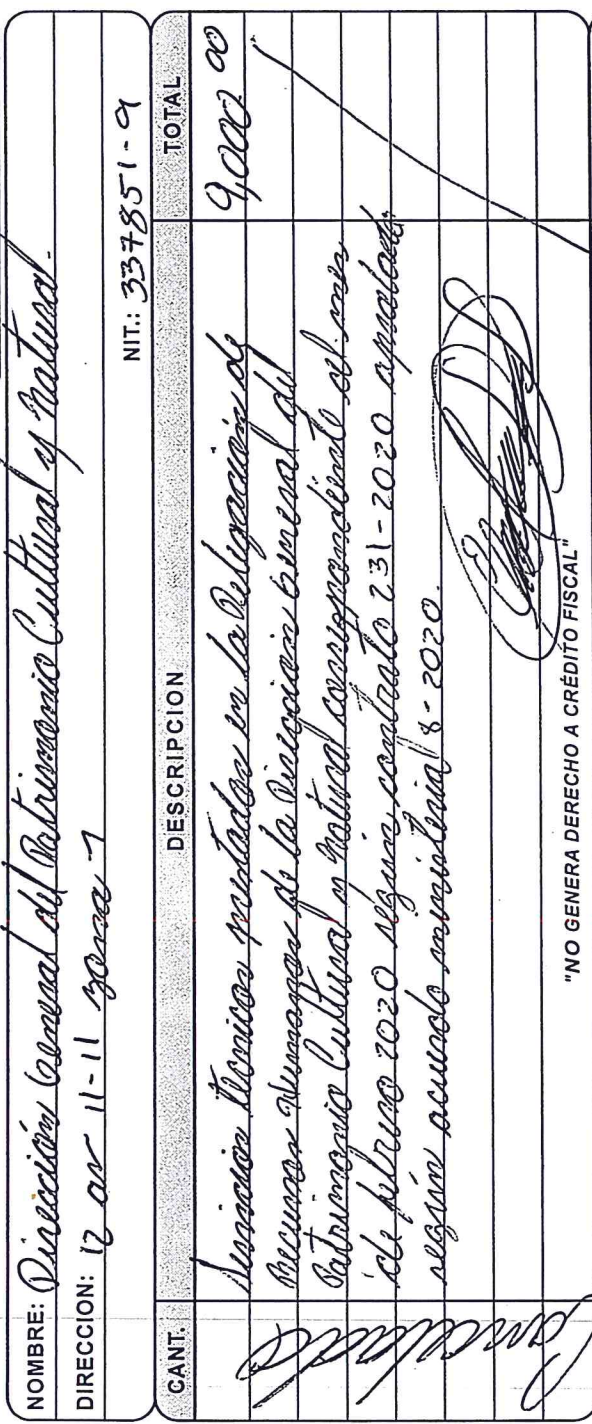 NOMBRE: Dirección General del Patrimonio Cultural y Natural.
DIRECCION: 12 av 11-11 zona 1
NIT.: 337851-9
CANT. DESCRIPCION TOTAL
Servicios técnicos prestados en la Delegación de 9,000 00
Recursos Humanos de la Dirección General del
Patrimonio Cultural y Natural correspondiente al mes
de febrero 2020 según contrato 231-2020 aprobado
según acuerdo ministerial 8-2020.
Cancelado
"NO GENERA DERECHO A CRÉDITO FISCAL"